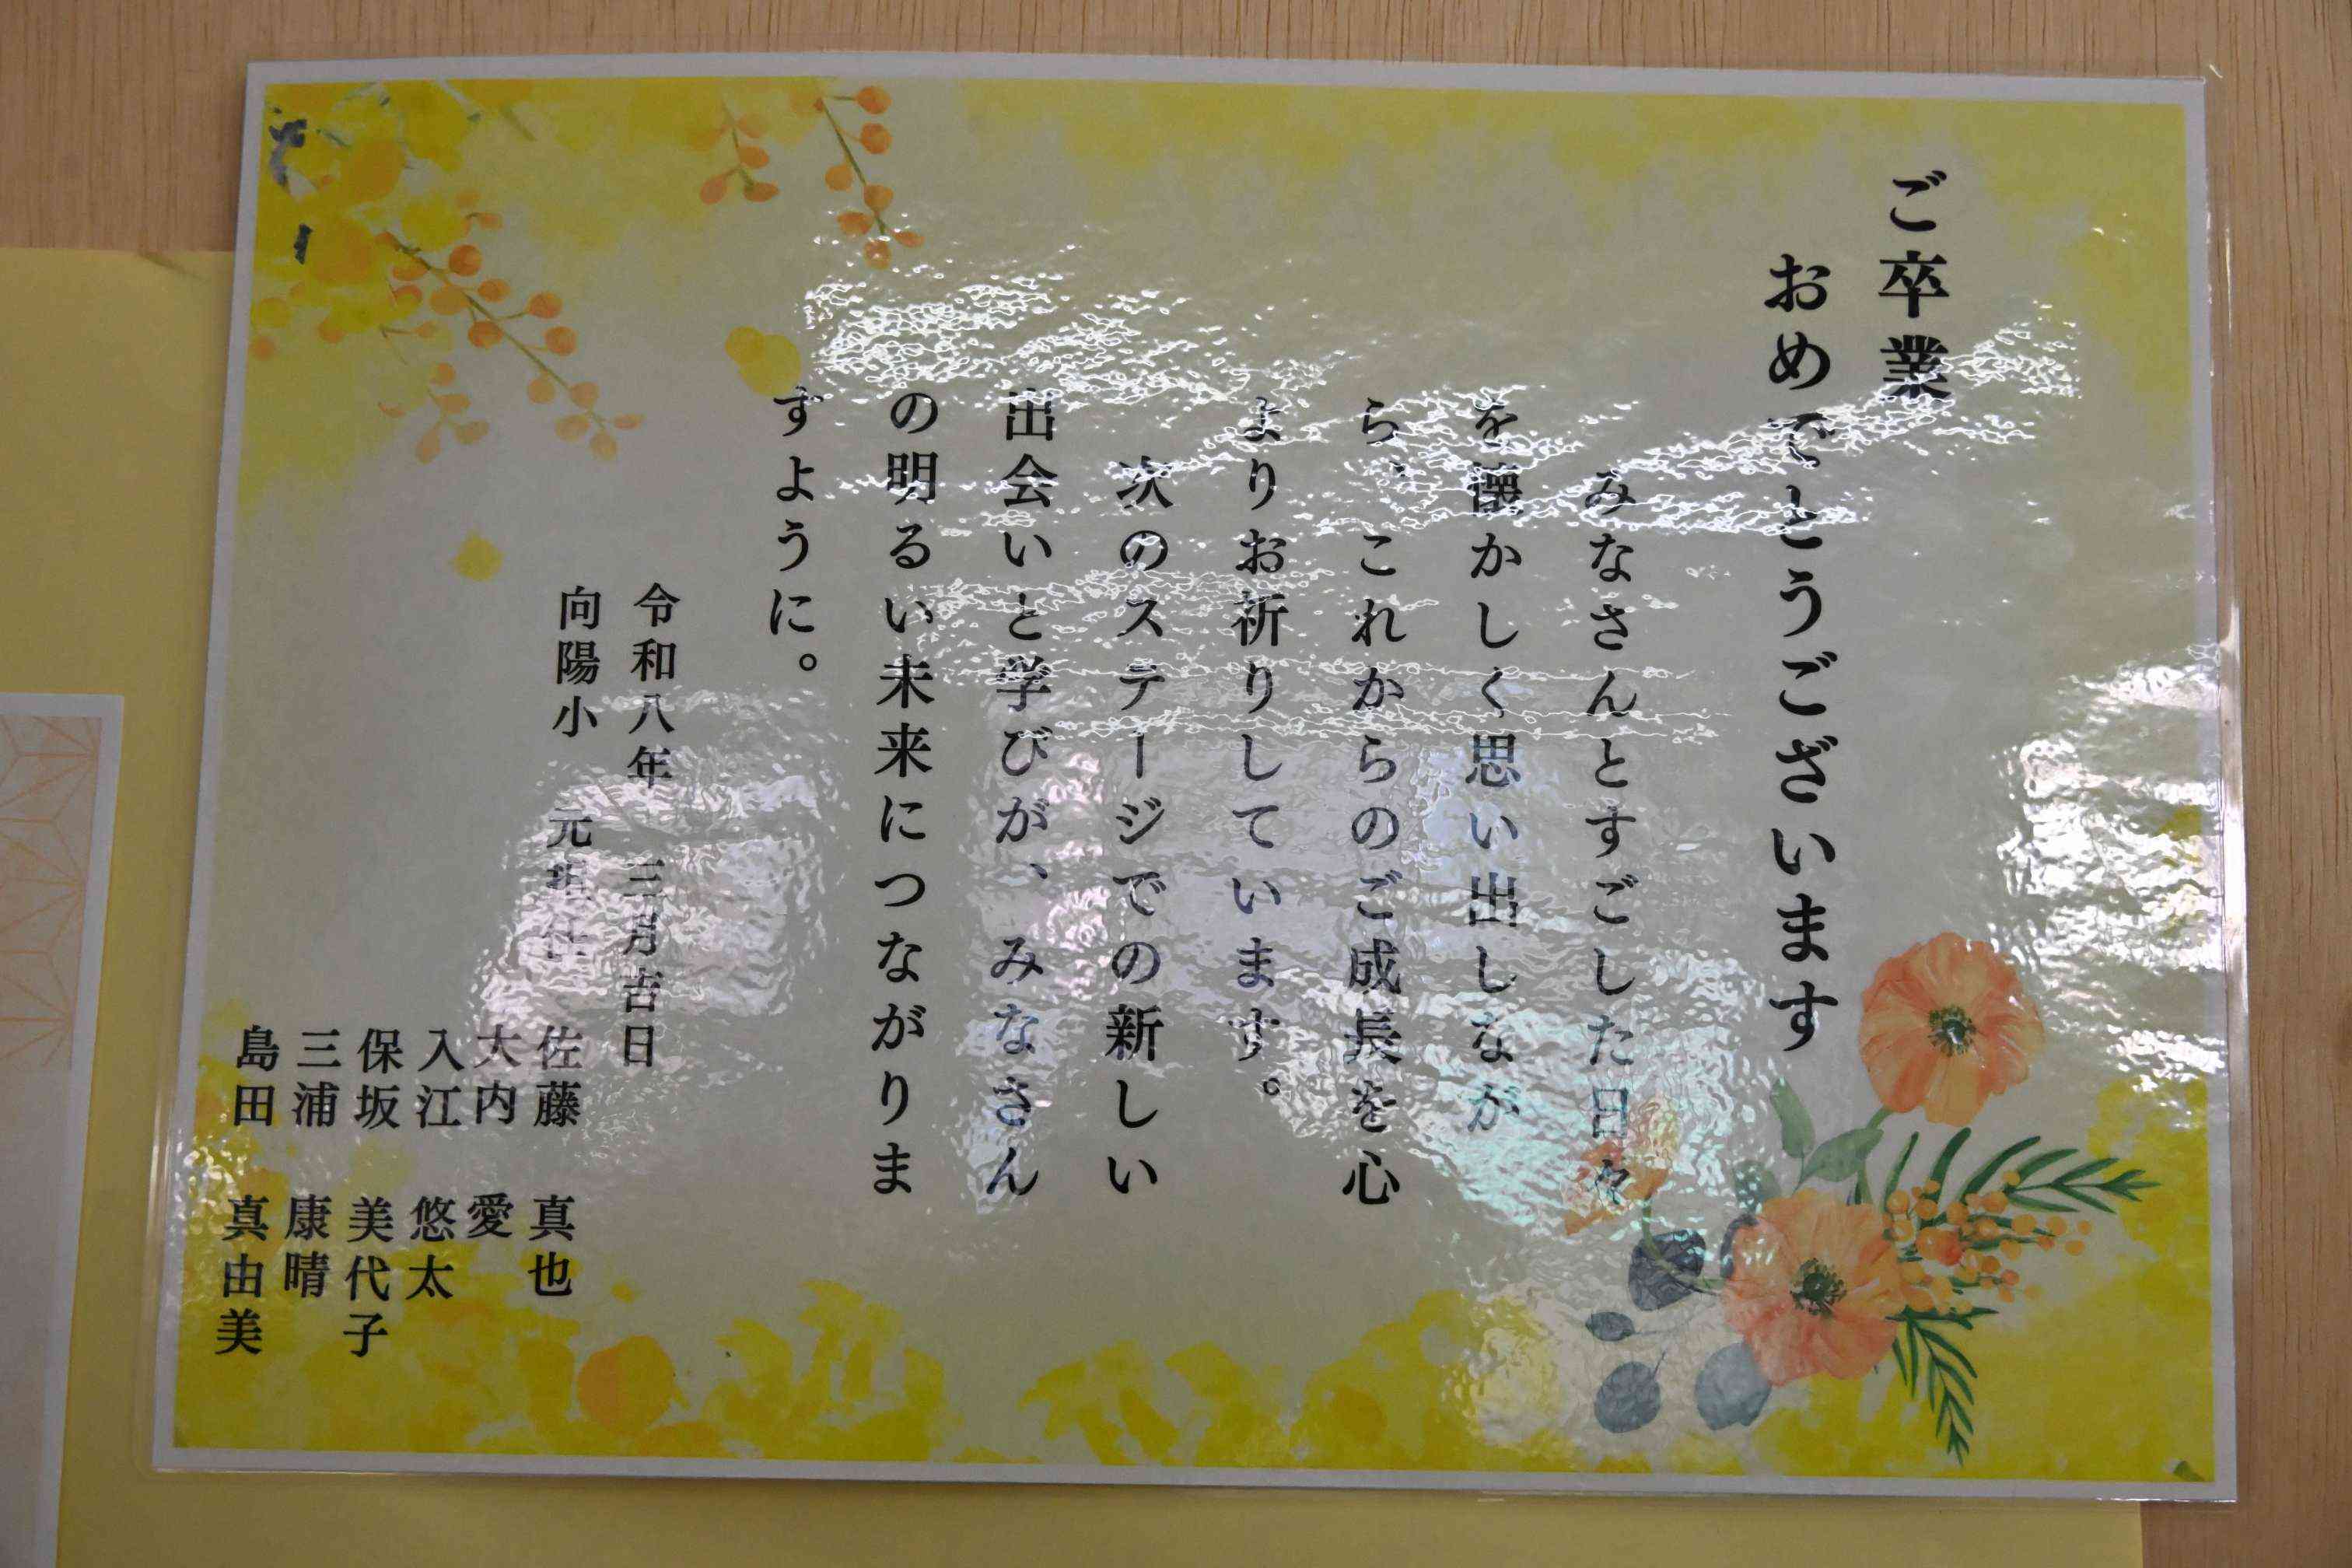 ご卒業
おめでとうございます
みなさんとすごした日々
を懐かしく思い出しなが
ら、これからのご成長を心
よりお祈りしています。
次のステージでの新しい
出会いと学びが、みなさん
の明るい未来につながりま
すように。
令和八年 三月吉日
向陽小 元担任
佐藤 真也
大内 愛
入江 悠太
保坂 美代子
三浦 康晴
島田 真由美